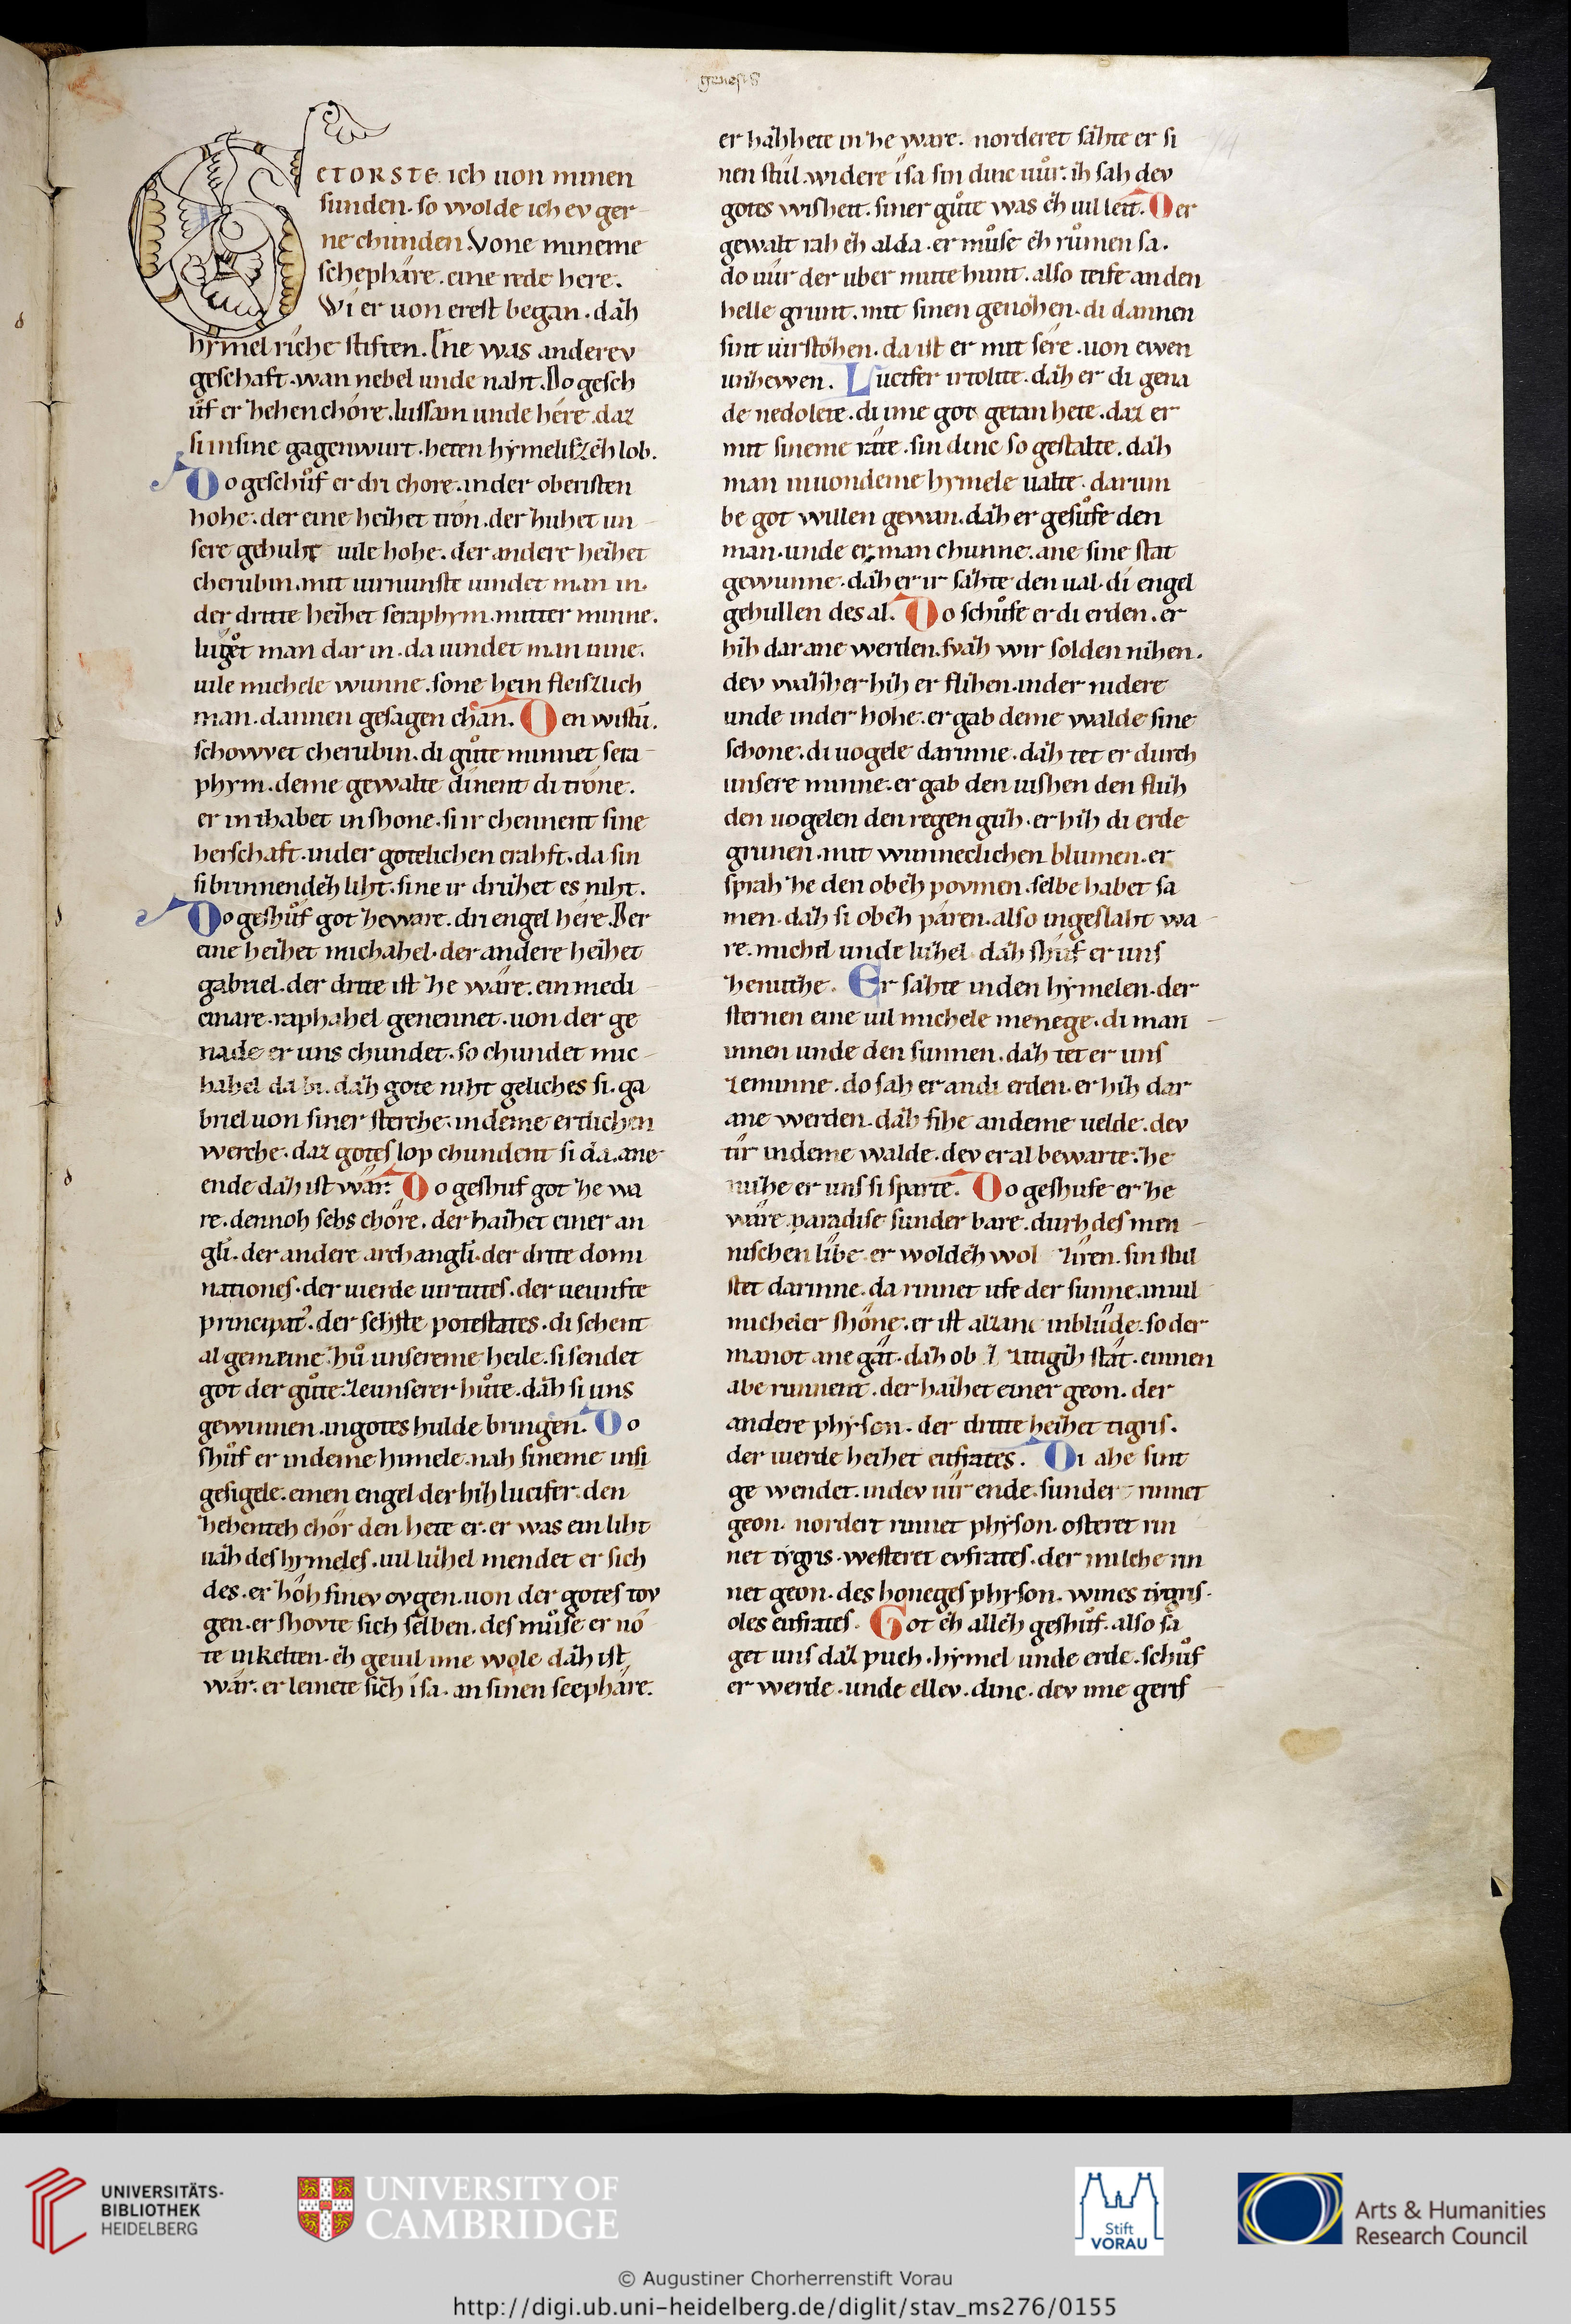 genesis
GETORSTE ich uon minen
sunden. so wolde ich ev ger-
ne chunden. Vone mineme
schephare. eine rede here.
Wi er uon erest began. dah
hymelriche stiften. Ene was anderev
geschaft. wan nebel unde naht. Do gesch
uͦf er zehen chore. lussam unde here. daz
si in sine gagenwurt. heten hymelisz eh lob.
Do geschuͦf er dri chore. in der oberisten
hohe. der eine heizet tron. der ziuhet un-
sere gehuht uile hohe. der andere heizet
cherubin. mit uirnunste uindet man in.
der dritte heizet seraphym. mitter minne.
luget man dar in. da uindet man inne.
uile michele wunne. sone hein fleiszlich
man. dannen gesagen chan. Den wistuͦ.
schowet cherubin. di guͦte minnet sera-
phym. deme gewalte dinent di trone.
er intzhabet in shone. si ir chennent sine
herschaft. in der gotelichen crahft. da sin
si brinnendez liht. sine ir druzet es niht.
Do geshuͦf got zeware. dri engel here. Der
eine heizet michahel. der andere heizet
gabriel. der dritte ist ze ware. ein medi-
cinare. raphahel genennet. uon der ge
nade er uns chundet. so chundet mic-
hahel da bi. daz gote niht geliches si. ga
briel uon siner sterche. in deme ertlichen
werche. daz gotes lop chundent si da. ane
ende daz ist war. Do geshuf got ze wa
re. dennoh sehs chore. der haizet einer an
gli. der andere archangli. der dritte domi
nationes. der uierde uirtutes. der ueunfte
principat'. der sehste potestates. di schent
al gemeine. zuͦ unsereme heile. si sendet
got der guͦte. ze unserer huͦte. daz si uns
gewinnen. in gotes hulde bringen. Do
shuͦf er in deme himele. nah sineme insi
gesigele. einen engel der hiz lucifer. den
zehenteh chor den hete er. er was ein liht
uaz des hymeles. uil luzel mendet er sich
des. er hoh sinev ovgen. uon der gotes tov
gen. er shovte sich selben. des muͦse er no
te inkelten. ez geuil ime wole daz ist
war. er leinete sich isa. an sinen scephare.
er hazzete in ze ware. norderet sazte er si
nen stuͦl. widere isa sin dinc uuͦr. ih sah dev
gotes wisheit. siner guͦte was eh uil leit. Der
gewalt rah eh alda. er muͦse eh ruͦmen sa.
do uuͦr der uber mutte hunt. also teife an den
helle grunt. mit sinen genozen. di dannen
sint uirstozen. da ist er mit sere. uon ewen
unzewen. Lucifer irtolite. daz er di gena
de nedolete. di ime got getan hete. daz er
mit sineme rate. sin dinc so gestalte. dah
man in uondeme hymele ualte. darum
be got willen gewan. daz er gesuͦfe den
man. unde er man chunne. ane sine stat
gewunne. daz er ir sazte den ual. di engel
gehullen des al. Do schuͦfe er di erden. er
hiz dar ane werden. svaz wir solden niezen.
dev wazzer hiz er fliezen. in der nidere
unde in der hohe. er gab deme walde sine
schone. di uogele dar inne. daz tet er durch
unsere minne. er gab den uishen den fluz
den uogelen den regen guz. er hiz di erde
grunen. mit wunneclichen blumen. er
sprah ze den obeh povmen. selbe habet sa
men. daz si obeh paren. also ingeslaht wa-
re. michel unde luzel daz shuf er uns
zenuzhe. Er sazte in den hymelen. der
sternen eine uil michele menege. di man
innen unde den sunnen. daz tet er uns
ze minne. do sah er an di erden. er hiz dar
ane werden. daz fihe an deme uelde. dev
tir in deme walde. dev er al bewarte. ze
nuzhe er uns si sparte. Do geshufe er ze
ware paradise sunderbare. durh des men-
nischen libe. er woldeh wol ziren. sin stul
stet dar inne. da rinnet ufe der sunne. in uil
micheler shone. er ist alzane in blude. so der
manot ane gat. daz ob zitigiz stat. einnen
abe rinnent. der haizet einer geon. der
andere physon. der dritte heizet tigris.
der uierde heizet eufrates. Di ahe sint
gewendet. in dev uir ende. sundert rinnet
geon. nordert rinnet physon. osteret rin
net tygris. westeret evfrates. der milche rin
net geon. des honeges physon. wines tygris.
oles eufrates. Got eh alleh geshuͦf. also sa
get uns daz puch. hymel unde erde. schuͦf
er werde. unde ellev. dinc. dev ime gerif
UNIVERSITÄTS-
BIBLIOTHEK
HEIDELBERG
UNIVERSITY OF
CAMBRIDGE
Stift
VORAU
Arts & Humanities
Research Council
© Augustiner Chorherrenstift Vorau
http://digi.ub.uni-heidelberg.de/diglit/stav_ms276/0155